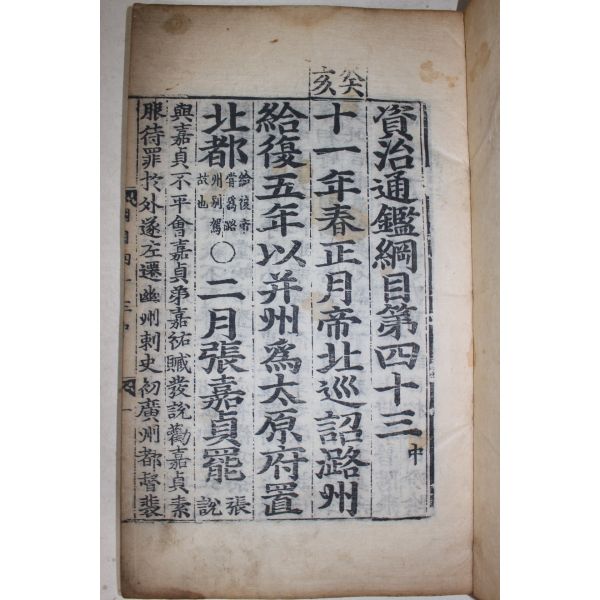 資治通鑑綱目第四十三 中
癸亥
十一年春正月帝北巡詔潞州
給復五年以并州爲太原府置
北都 給復帝嘗爲潞州別駕故也 ○二月張嘉貞罷 張說
與嘉貞不平會嘉貞弟嘉祐贓發說勸嘉貞素
服待罪於外遂左遷幽州刺史初廣州都督裴